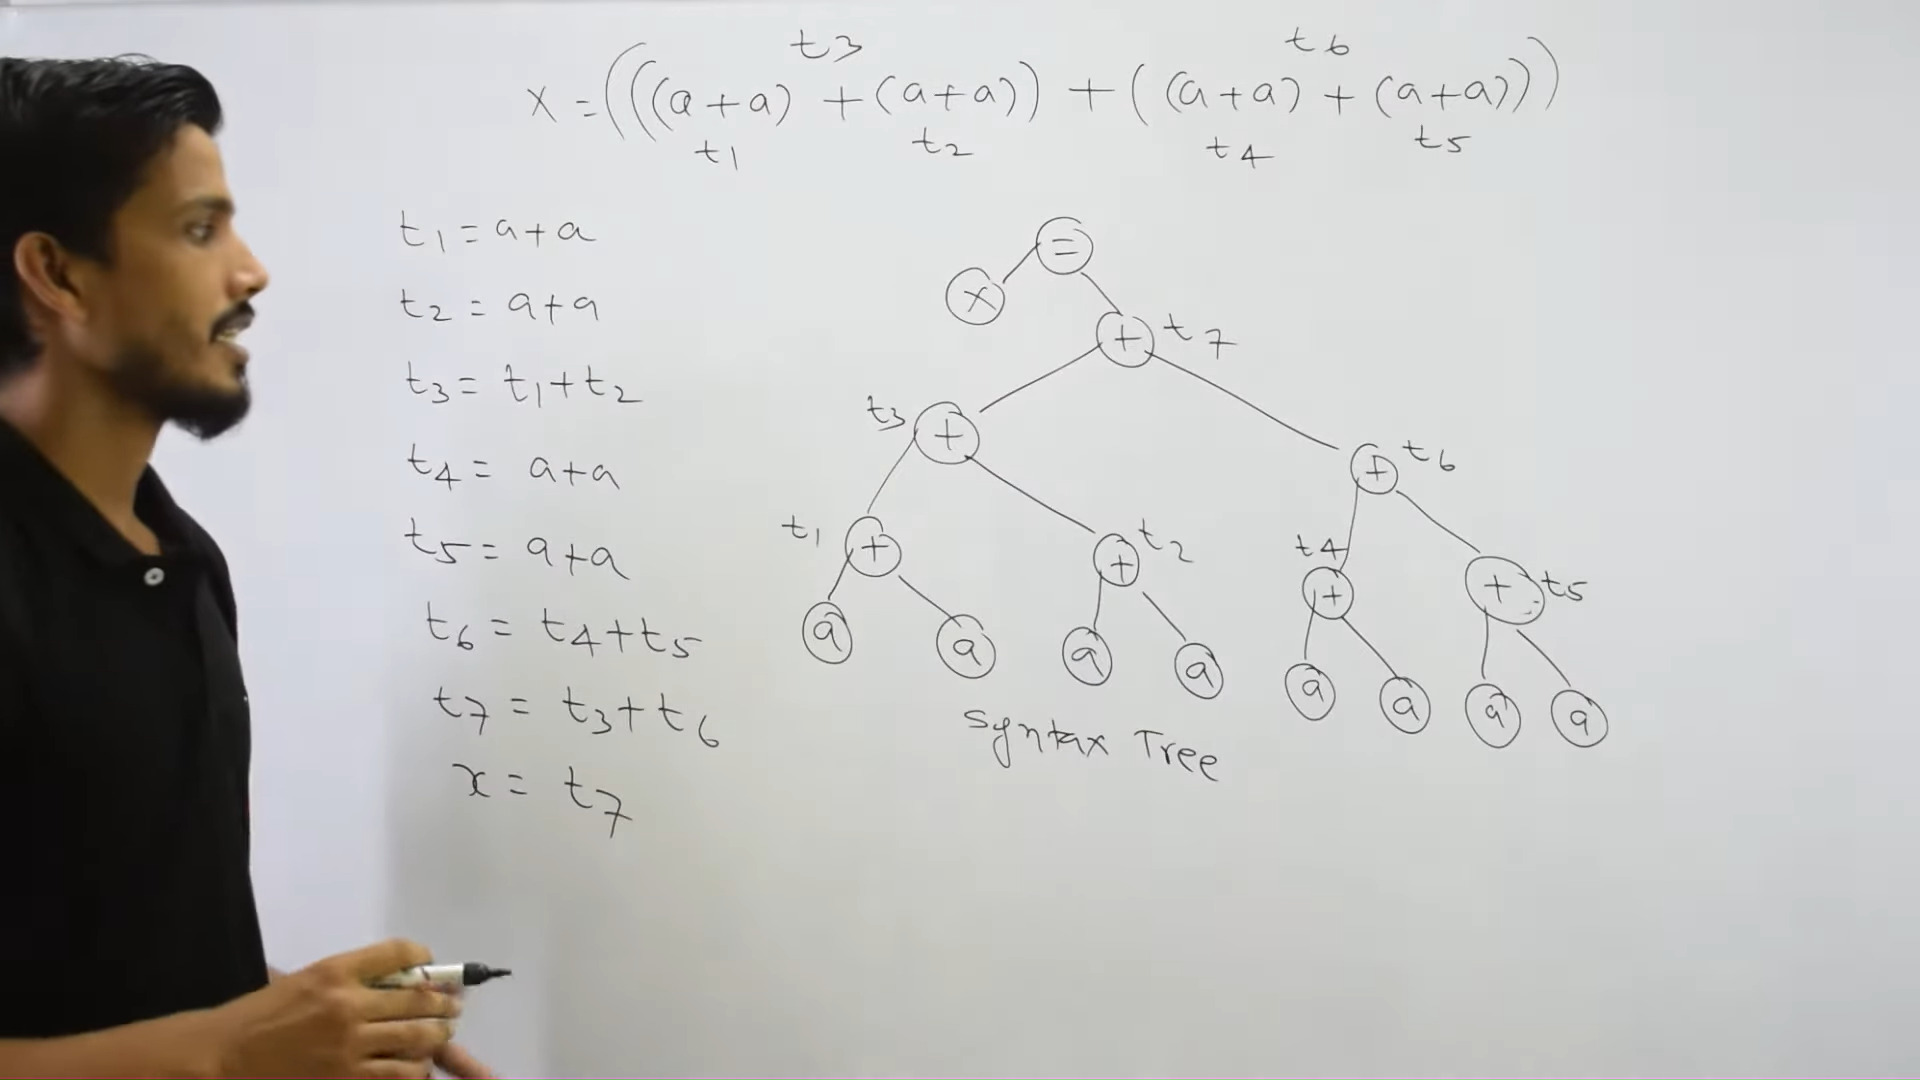 t3 t6
x = (((a+a) + (a+a)) + ((a+a) + (a+a)))
t1 t2 t4 t5
t1 = a+a
t2 = a+a
t3 = t1+t2
t4 = a+a
t5 = a+a
t6 = t4+t5
t7 = t3+t6
x = t7
=
x
+ t7
t3 +
+ t6
t1 + + t2
t4 + + t5
a a a a a a a a
Syntax Tree